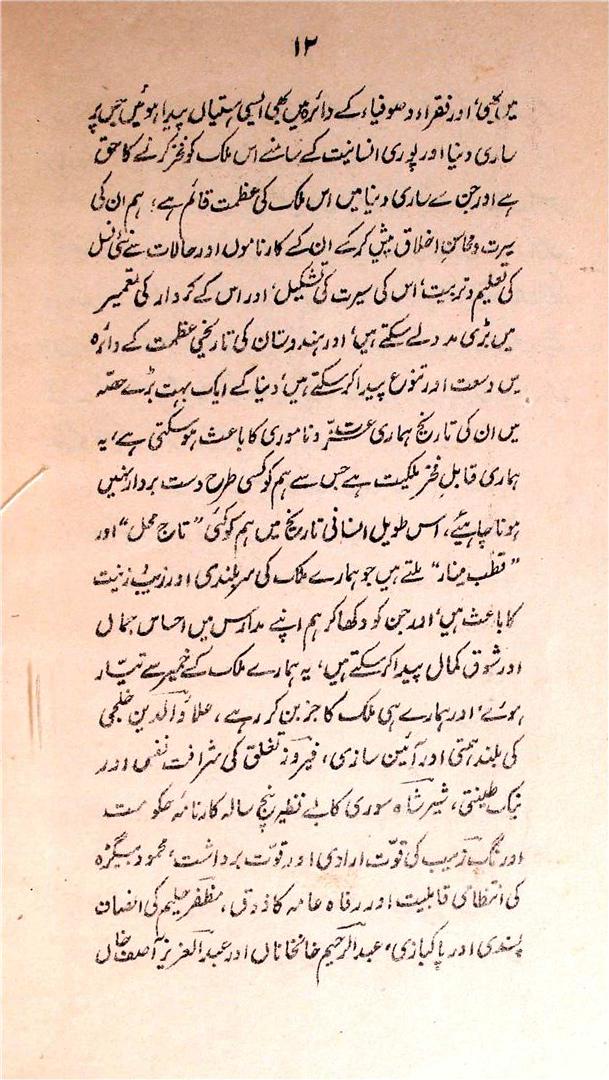 ۱۲
میں بھی، اور فقراء و صوفیاء کے دائرہ میں بھی ایسی ہستیاں پیدا ہوئیں جن پر
ساری دنیا اور پوری انسانیت کے سامنے اس ملک کو فخر کرنے کا حق
ہے اور جن سے ساری دنیا میں اس ملک کی عظمت قائم ہے؛ ہم ان کی
سیرت و محاسن اخلاق پیش کرکے ان کے کارناموں اور حالات سے نئی نسل
کی تعلیم و تربیت، اس کی سیرت کی تشکیل، اور اس کے کردار کی تعمیر
میں بڑی مدد لے سکتے ہیں، اور ہندوستان کی تاریخی عظمت کے دائرہ
میں وسعت اور تنوع پیدا کرسکتے ہیں، دنیا کے ایک بہت بڑے حصّہ
میں ان کی تاریخ ہماری عزت و ناموری کا باعث ہوسکتی ہے، یہ
ہماری قابلِ فخر ملکیت ہے جس سے ہم کو کسی طرح دست بردار نہیں
ہونا چاہیئے، اس طویل انسانی تاریخ میں ہم کو کئی "تاج محل" اور
"قطب مینار" ملتے ہیں جو ہمارے ملک کی سربلندی اور زیب و زینت
کا باعث ہیں، اور جن کو دکھا کر ہم اپنے مدارس میں احساس جمال
اور شوق کمال پیدا کرسکتے ہیں، یہ ہمارے ملک کے خمیر سے تیّار
ہوئے، اور ہمارے ہی ملک کا جز بن کر رہے، علاؤ الدین خلجی
کی بلند ہمتی اور آئین سازی، فیروز تغلق کی شرافت نفس اور
نیک طینتی، شیر شاہ سوری کا بے نظیر پنج سالہ کارنامۂ حکومت
اورنگ زیب کی قوّت ارادی اور قوّت برداشت، محمود بیگڑہ
کی انتظامی قابلیت اور رفاہ عامہ کا ذوق، مظفر حلیم کی انصاف
پسندی اور پاکبازی، عبدالرحیم خانخاناں اور عبدالعزیز آصف خاں